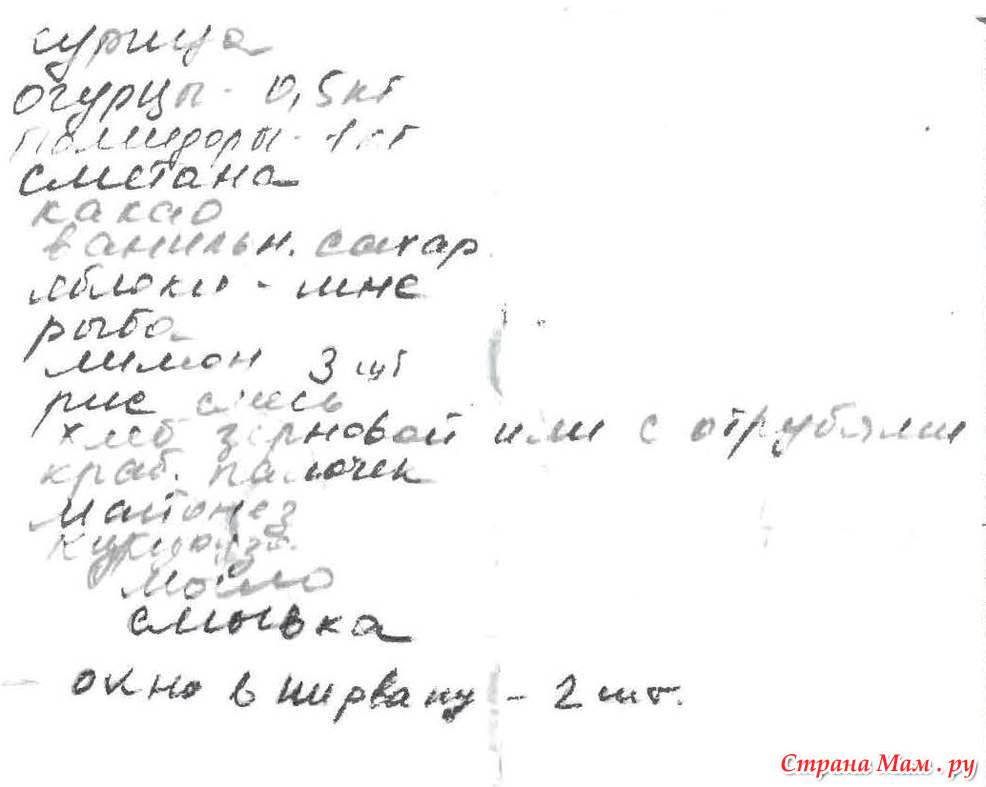 курица
огурцы - 0,5 кг
помидоры - 1 кг
сметана
какао
ванильн. сахар
яблоки - мне
рыба
лимон 3 шт
рис смесь
хлеб зерновой или с отрубями
краб. палочек
майонез
кукуруза
мыло
сливка
окно в нирвану - 2 шт.
Страна Мам . ру